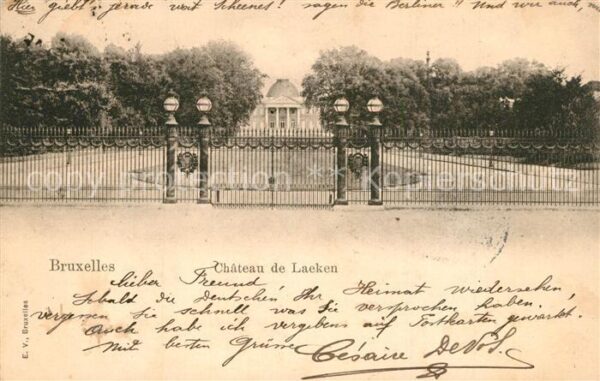 Hier giebt's jerade wat Scheenes! sagen die Berliner" Und wir auch,
copyright protection ** Kopierschutz
Bruxelles
Château de Laeken
Lieber Freund
Sobald die Deutschen Ihr Heimat wiedersehen,
vergessen sie schnell was Sie versprochen haben.
Auch habe ich vergebens auf Postkarten gewartet.
Mit besten Grüsse Césaire DeVos
E. V., Bruxelles